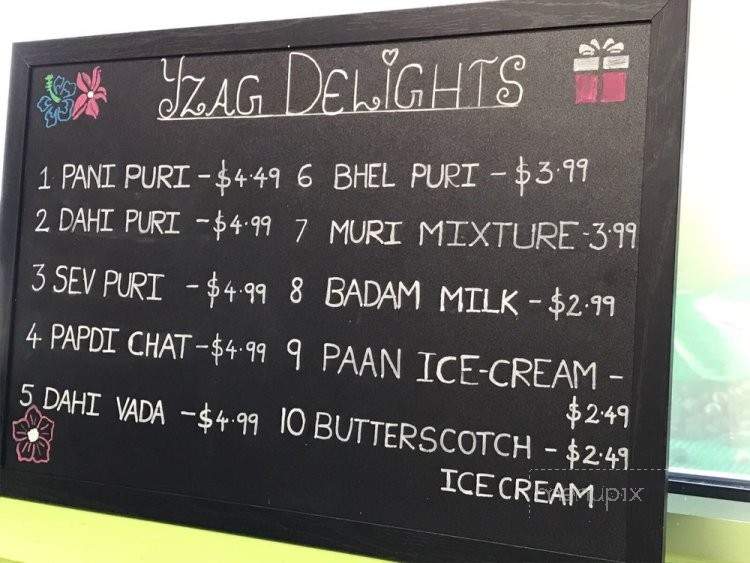 YZAG DELIGHTS
1 PANI PURI - $4.49
2 DAHI PURI - $4.99
3 SEV PURI - $4.99
4 PAPDI CHAT - $4.99
5 DAHI VADA - $4.99
6 BHEL PURI - $3.99
7 MURI MIXTURE - 3.99
8 BADAM MILK - $2.99
9 PAAN ICE-CREAM -
$2.49
10 BUTTERSCOTCH - $2.49
ICE CREAM
menupix